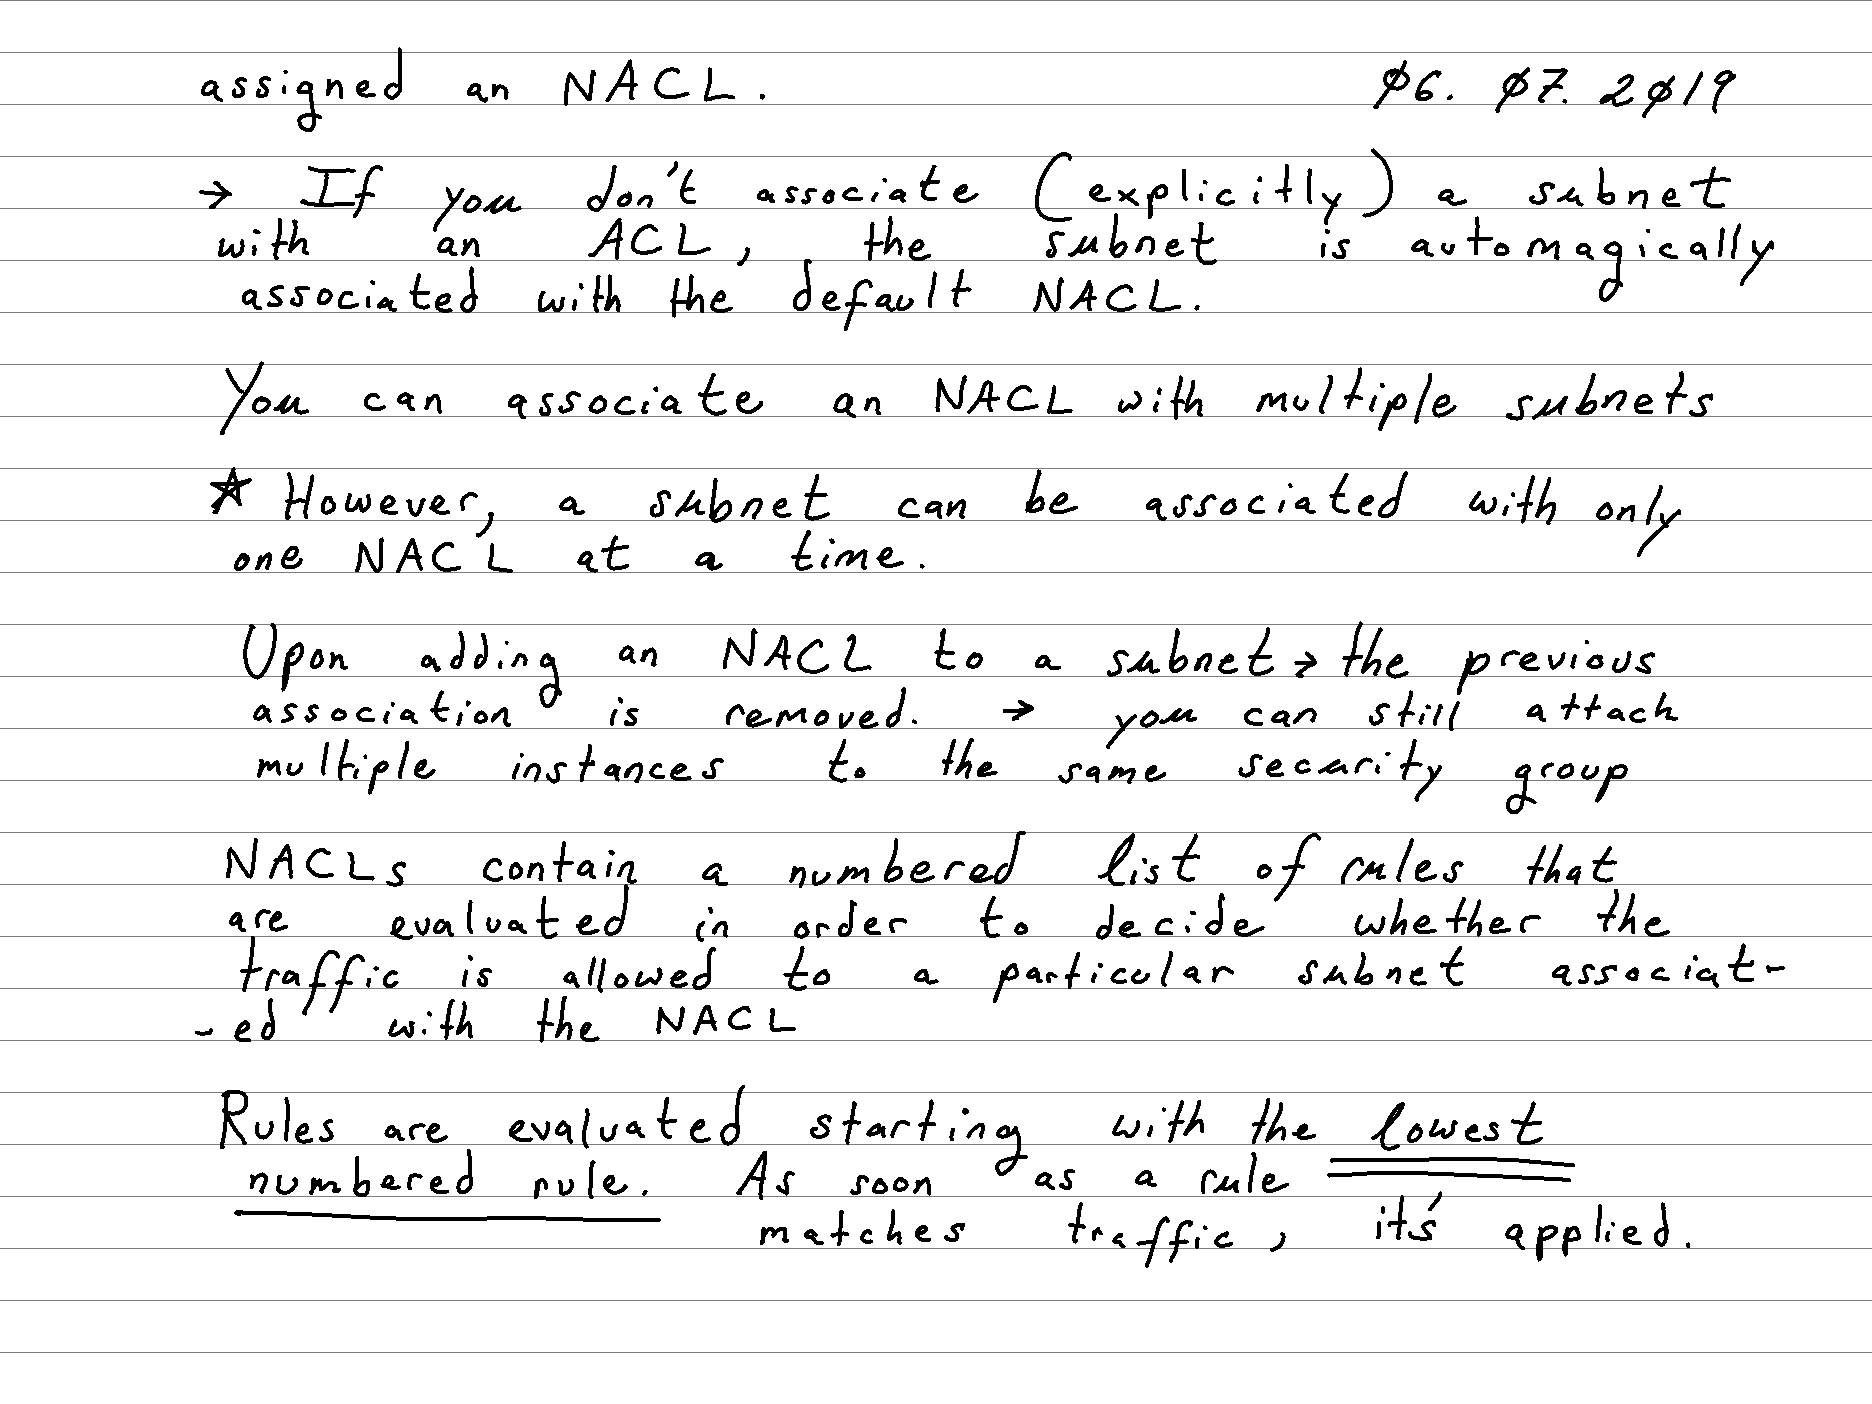 assigned an NACL. 06. 07. 2019
→ If you don't associate (explicitly) a subnet
with an ACL, the subnet is automagically
associated with the default NACL.
You can associate an NACL with multiple subnets
★ However, a subnet can be associated with only
one NACL at a time.
Upon adding an NACL to a subnet → the previous
association is removed. → you can still attach
multiple instances to the same security group
NACLs contain a numbered list of rules that
are evaluated in order to decide whether the
traffic is allowed to a particular subnet associat-
-ed with the NACL
Rules are evaluated starting with the lowest
numbered rule. As soon as a rule
matches traffic, it's applied.